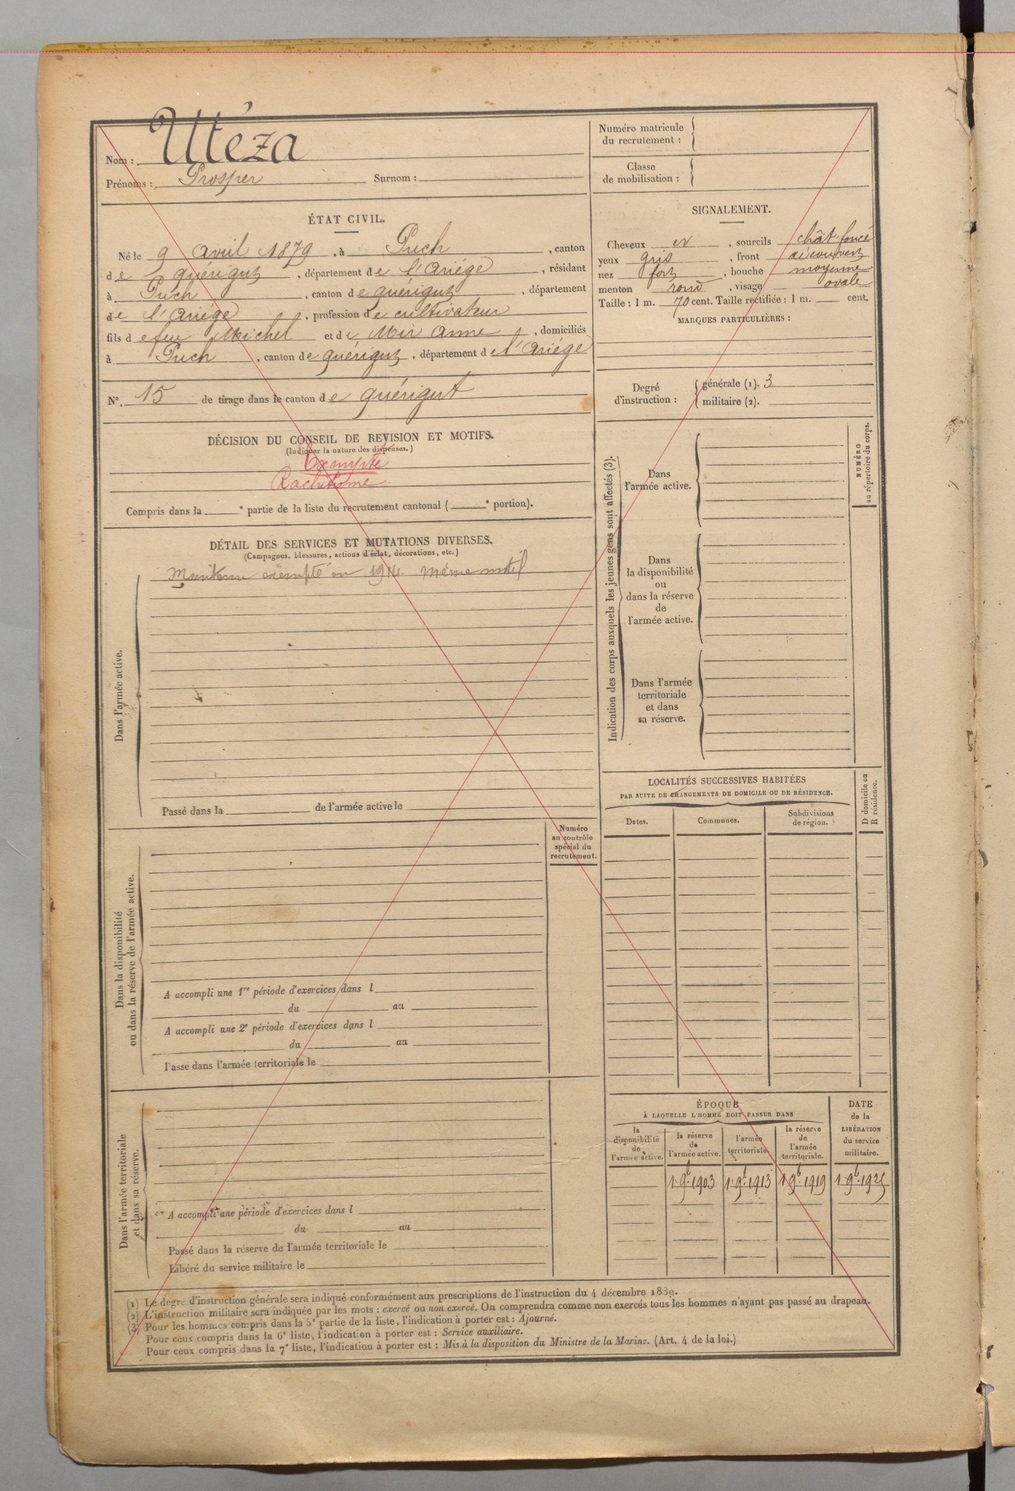 Nom : Utéza
Prénoms : Prosper Surnom :
Numéro matricule
du recrutement :
Classe
de mobilisation :
ÉTAT CIVIL.
Né le 9 avril 1879, à Puch, canton
de Quérigut, département de l'Ariége, résidant
à Puch, canton de Quérigut, département
de l'Ariége, profession de cultivateur
fils de feu Michel et de Mir Anne, domiciliés
à Puch, canton de Quérigut, département de l'Ariége
N°. 15 de tirage dans le canton de Quérigut
SIGNALEMENT.
Cheveux et, sourcils chât foncé
yeux gris, front découvert
nez fort, bouche moyenne
menton rond, visage ovale
Taille : 1 m. 70 cent. Taille rectifiée : 1 m. cent.
MARQUES PARTICULIÈRES :
Degré
d'instruction :
générale (1). 3
militaire (2).
DÉCISION DU CONSEIL DE REVISION ET MOTIFS.
(Indiquer la nature des dispenses.)
Exempté
Rachitisme
Compris dans la e partie de la liste du recrutement cantonal ( e portion).
DÉTAIL DES SERVICES ET MUTATIONS DIVERSES.
(Campagnes, blessures, actions d'éclat, décorations, etc.)
Dans l'armée active.
Maintenu exempté en 1914. même motif
Passé dans la de l'armée active le
Indication des corps auxquels les jeunes gens sont affectés (3).
Dans
l'armée active.
Dans
la disponibilité
ou
dans la réserve
de
l'armée active.
Dans l'armée
territoriale
et dans
sa réserve.
NUMÉRO
au répertoire du corps.
LOCALITÉS SUCCESSIVES HABITÉES
PAR SUITE DE CHANGEMENTS DE DOMICILE OU DE RÉSIDENCE.
D domicile ou
R résidence.
Dates. Communes. Subdivisions
de région.
Numéro
au contrôle
spécial du
recrutement.
Dans la disponibilité
ou dans la réserve de l'armée active.
A accompli une 1re période d'exercices dans l
du au
A accompli une 2e période d'exercices dans l
du au
Passé dans l'armée territoriale le
Dans l'armée territoriale
et dans sa réserve.
A accompli une période d'exercices dans l
du au
Passé dans la réserve de l'armée territoriale le
Libéré du service militaire le
ÉPOQUE
À LAQUELLE L'HOMME DOIT PASSER DANS
la
disponibilité
de
l'armée active.
la réserve
de
l'armée active.
l'armée
territoriale.
la réserve
de
l'armée
territoriale.
DATE
de la
LIBÉRATION
du service
militaire.
1 9b 1903 1 9b 1913 1 9b 1919 1 9b 1925
(1) Le degré d'instruction générale sera indiqué conformément aux prescriptions de l'instruction du 4 décembre 1889.
(2) L'instruction militaire sera indiquée par les mots : exercé ou non exercé. On comprendra comme non exercés tous les hommes n'ayant pas passé au drapeau.
(3) Pour les hommes compris dans la 5e partie de la liste, l'indication à porter est : Ajourné.
Pour ceux compris dans la 6e liste, l'indication à porter est : Service auxiliaire.
Pour ceux compris dans la 7e liste, l'indication à porter est : Mis à la disposition du Ministre de la Marine. (Art. 4 de la loi.)